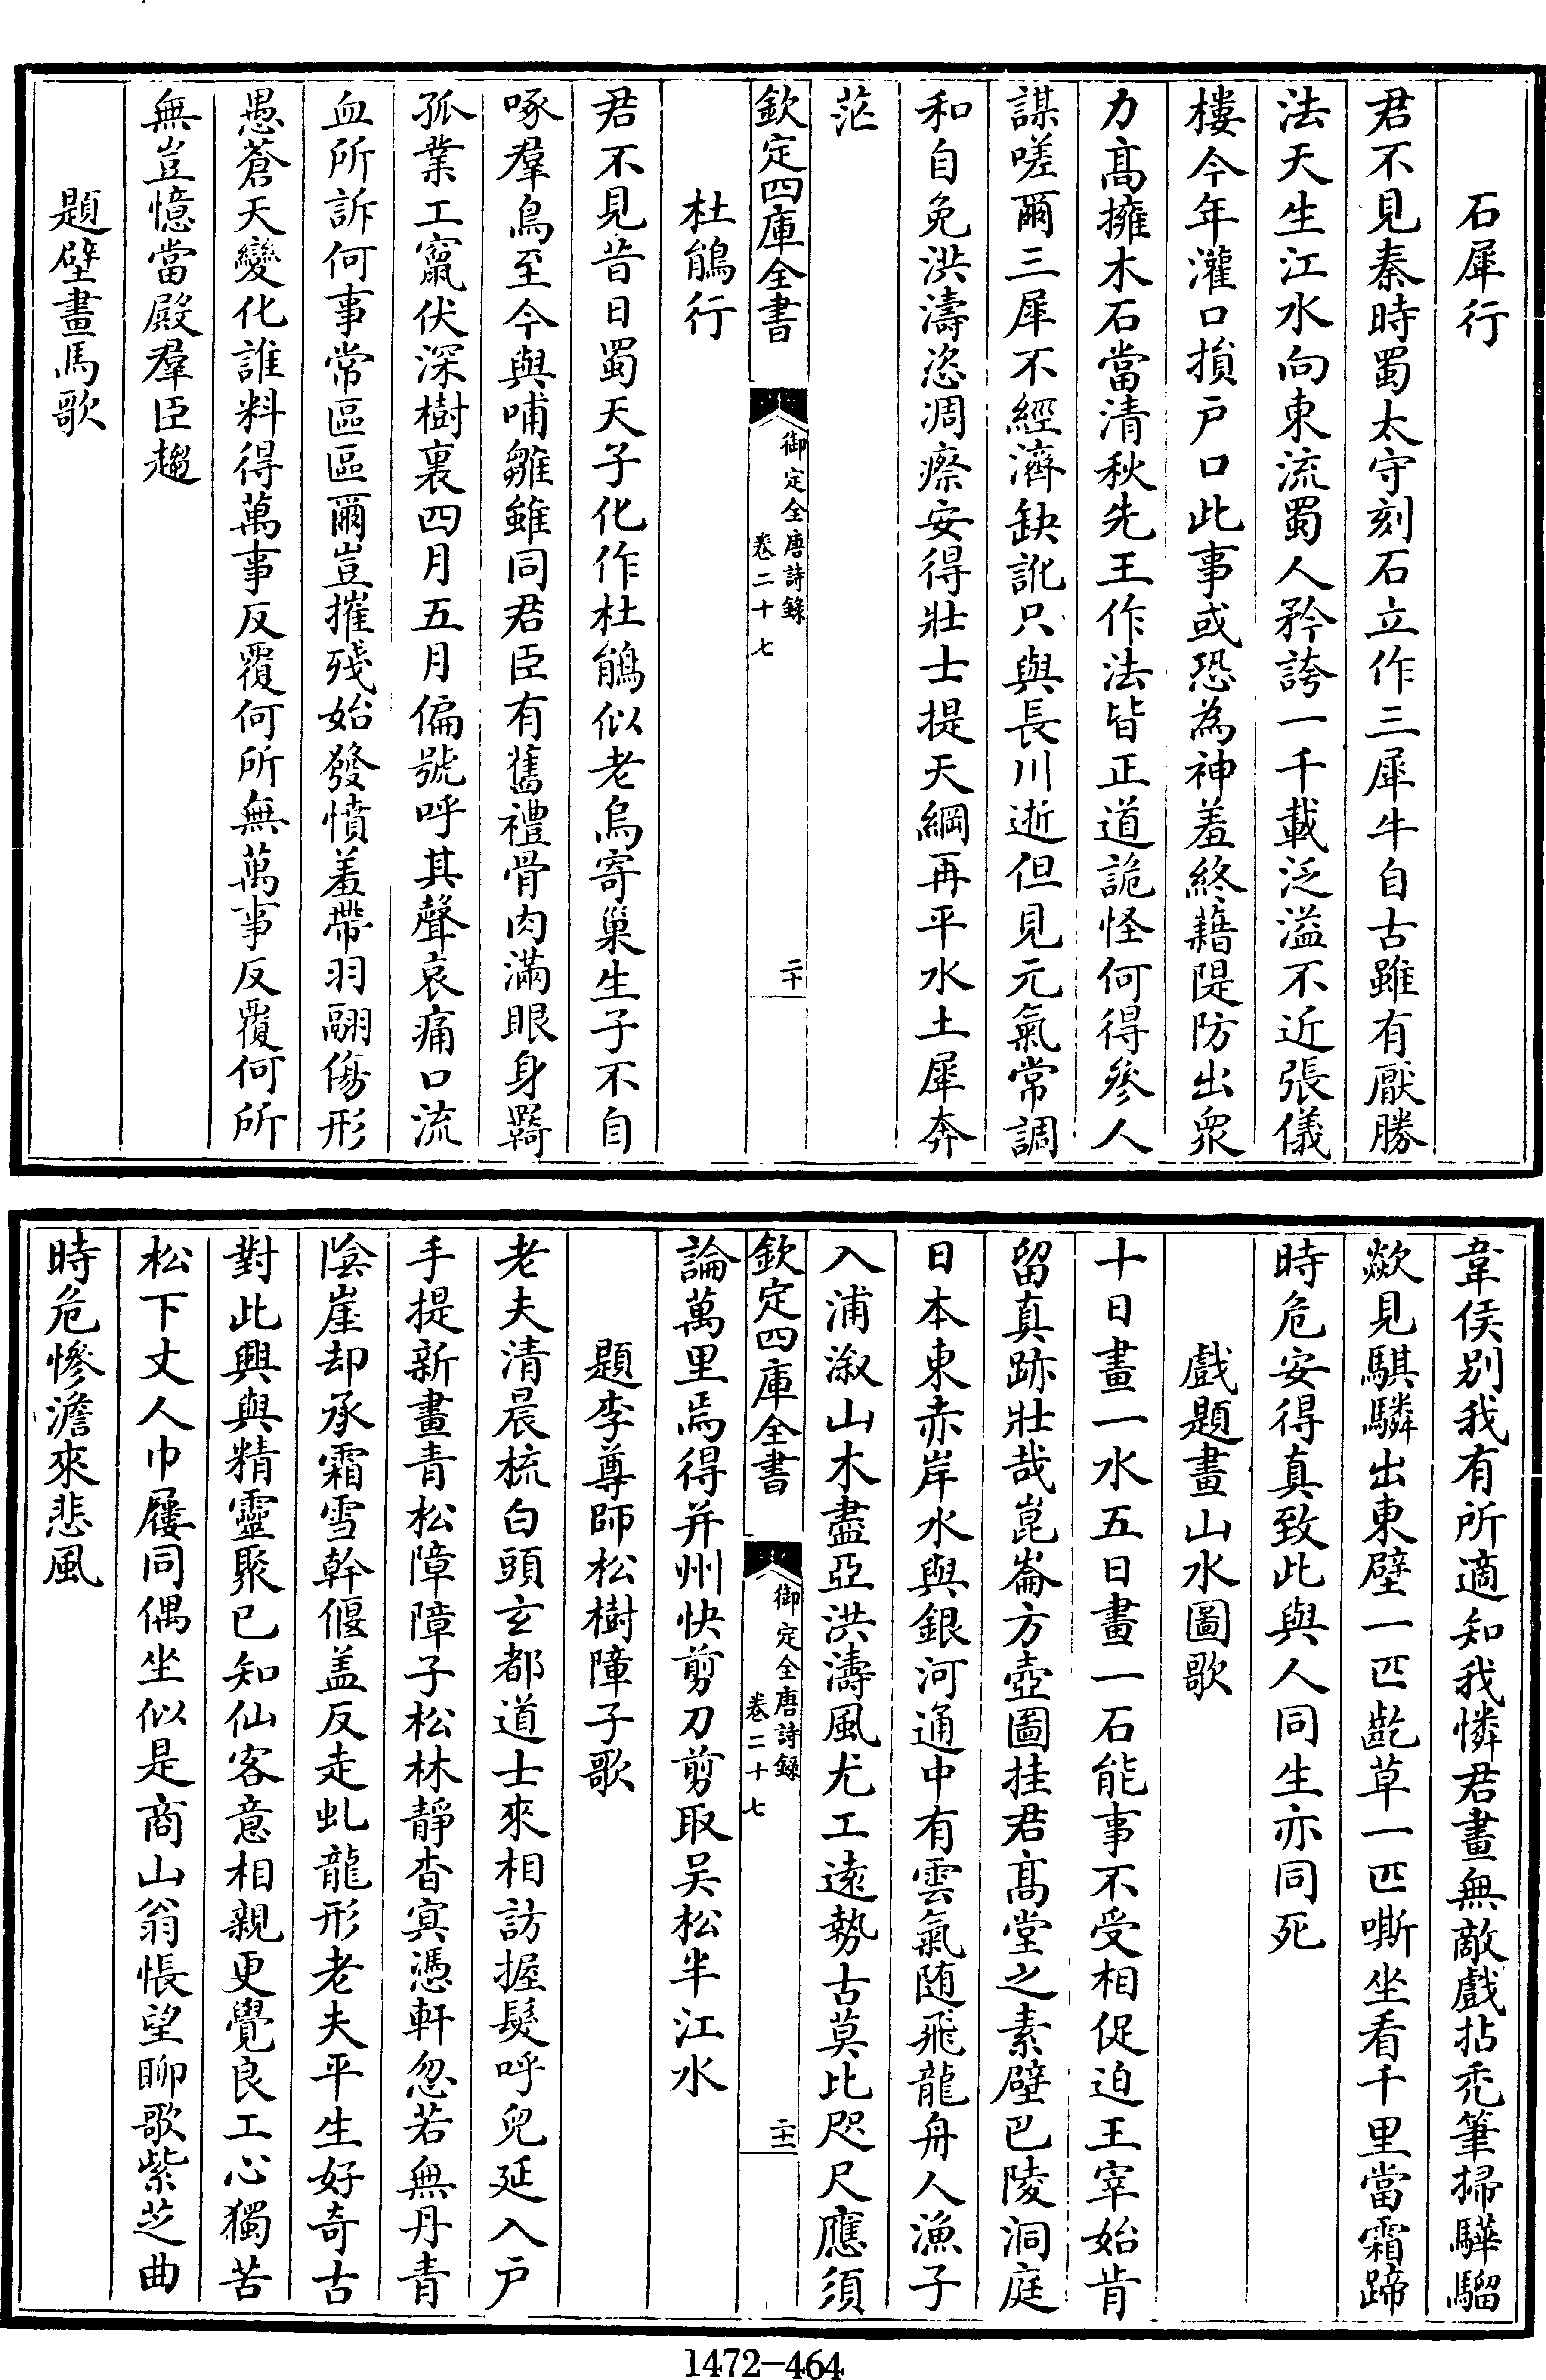 石犀行
君不見秦時蜀太守刻石立作三犀牛自古雖有厭勝
法天生江水向東流蜀人矜誇一千載泛溢不近張儀
樓今年灌口損戶口此事或恐為神羞終藉隄防出衆
力髙擁木石當清秋先王作法皆正道詭怪何得參人
謀嗟爾三犀不經濟缺訛只與長川逝但見元氣常調
和自免洪濤恣凋瘵安得壯士提天綱再平水土犀奔
茫
欽定四庫全書
御定全唐詩錄
卷二十七
二十
杜鵑行
君不見昔日蜀天子化作杜鵑似老烏寄巢生子不自
啄羣鳥至今與哺雛雖同君臣有舊禮骨肉滿眼身羇
孤業工竄伏深樹裏四月五月偏號呼其聲哀痛口流
血所訴何事常區區爾豈摧殘始發憤羞帶羽翮傷形
愚蒼天變化誰料得萬事反覆何所無萬事反覆何所
無豈憶當殿羣臣趨
題壁畫馬歌
韋侯别我有所適知我憐君畫無敵戲拈秃筆掃驊騮
歘見騏驎出東壁一匹齕草一匹嘶坐看千里當霜蹄
時危安得真致此與人同生亦同死
戲題畫山水圖歌
十日畫一水五日畫一石能事不受相促迫王宰始肯
留真跡壯哉崑崙方壺圖挂君髙堂之素壁巴陵洞庭
日本東赤岸水與銀河通中有雲氣随飛龍舟人漁子
入浦漵山木盡亞洪濤風尤工遠勢古莫比咫尺應須
欽定四庫全書
御定全唐詩錄
卷二十七
二十一
論萬里焉得并州快剪刀剪取吴松半江水
題李尊師松樹障子歌
老夫清晨梳白頭玄都道士來相訪握髮呼兒延入戶
手提新畫青松障障子松林靜杳冥憑軒忽若無丹青
陰崖却承霜雪幹偃盖反走虬龍形老夫平生好奇古
對此興與精靈聚已知仙客意相親更覺良工心獨苦
松下丈人巾屨同偶坐似是商山翁悵望聊歌紫芝曲
時危慘澹來悲風
1472—464